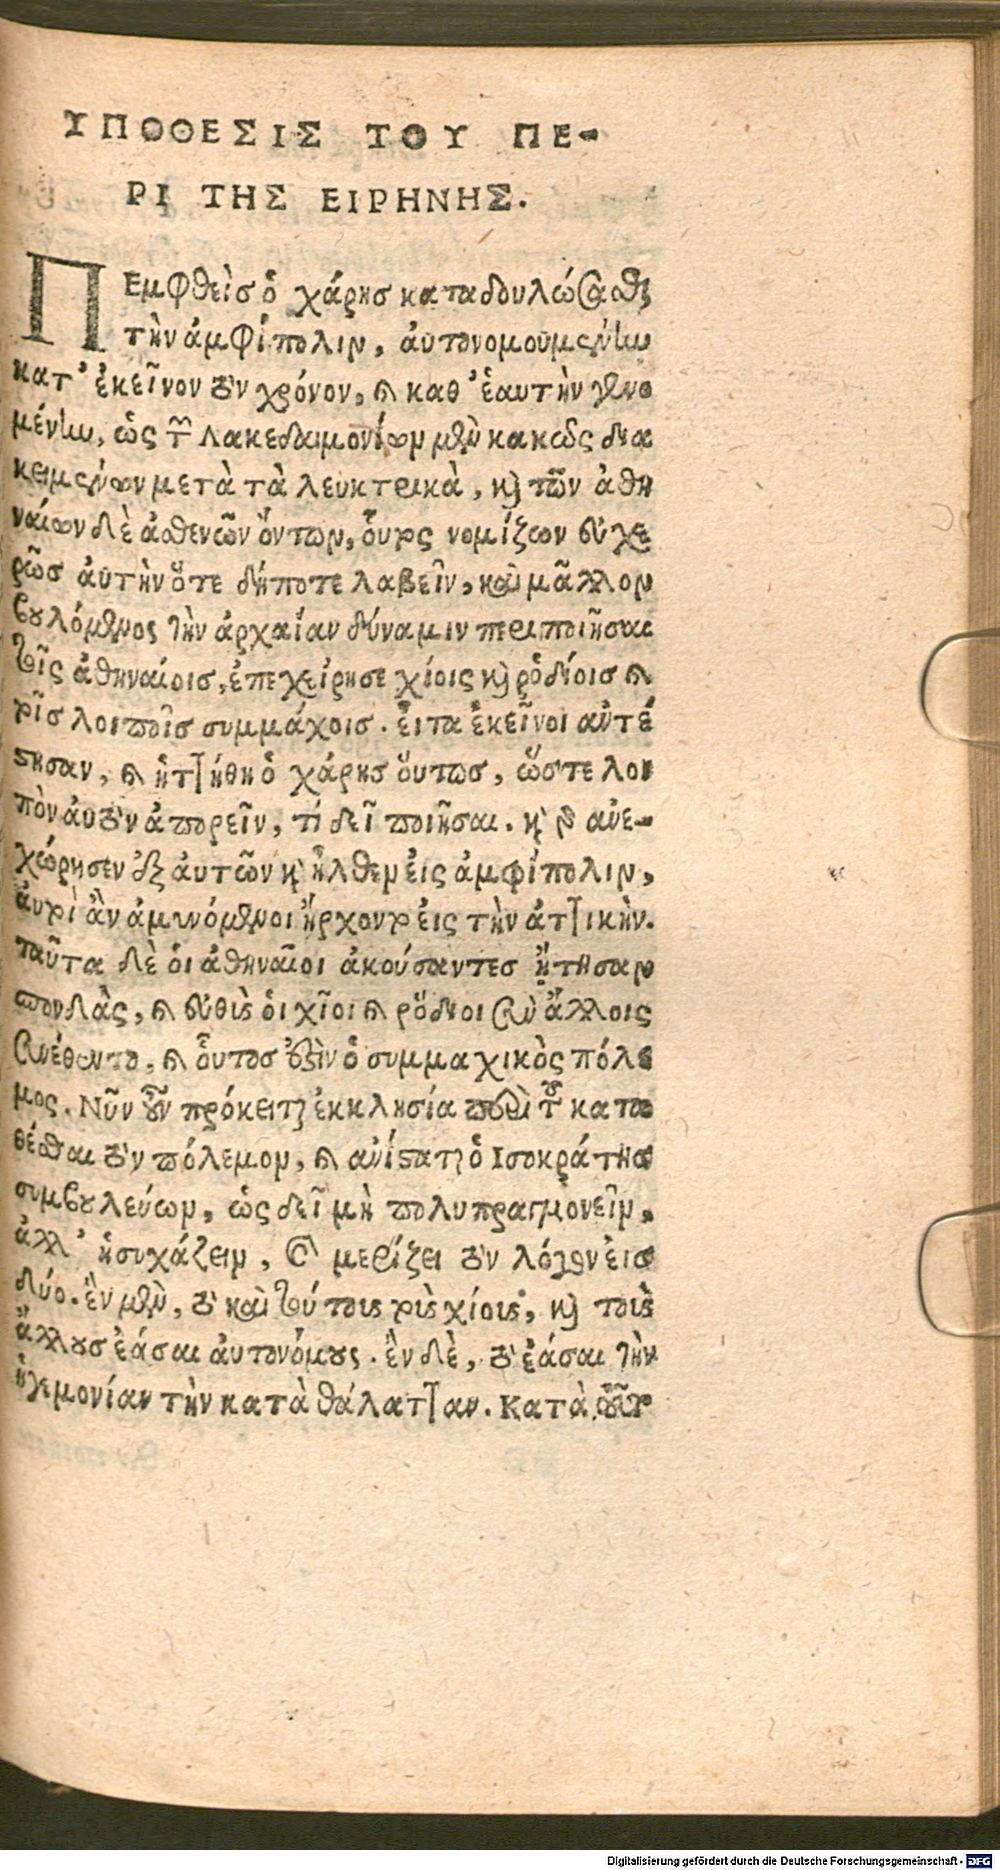 ΥΠΟΘΕΣΙΣ ΤΟΥ ΠΕ-
ΡΙ ΤΗΣ ΕΙΡΗΝΗΣ.
ΠΕμφθεὶσ ὁ χάρησ καταδουλώσασθαι
τὴν ἀμφίπολιν, ἀυτονομουμένην
κατ' ἐκεῖνον τὸν χρόνον, καὶ καθ' ἑαυτὴν γενο
μένην, ὡς τῶν Λακεδαιμονίων μὲν κακῶς δια
κειμένων μετὰ τὰ λευκτρικὰ, καὶ τῶν ἀθη
ναίων δὲ ἀσθενῶν ὄντων, ὅυτος νομίζων ἐυχε
ρῶσ ἀυτὴν ὅτε δήποτε λαβεῖν, καὶ μᾶλλον
βουλόμενος τὴν ἀρχαίαν δύναμιν περιποιῆσαι
τοῖς ἀθηναίοισ, ἐπεχείρησε χίοις καὶ ῥοδίοισ καὶ
τοῖσ λοιποῖσ συμμάχοισ. ἐῖτα ἐκεῖνοι ἀντέ
στησαν, καὶ ἡττήθη ὁ χάρησ ὅυτωσ, ὥστε λοι
πὸν ἀυτὸν ἀπορεῖν, τί δεῖ ποιῆσαι. καὶ γὰρ ἀνε-
χώρησεν ἐξ ἀυτῶν καὶ ἦλθεν ἐις ἀμφίπολιν,
ἀυτοὶ ἂν ἀμυνόμενοι ἤρχοντο ἐις τὴν ἀττικὴν.
ταῦτα δὲ ὁι ἀθηναῖοι ἀκούσαντεσ ᾔτησαν
σπονδὰς, καὶ ἐυθὺς ὁι χῖοι καὶ ῥόδιοι σὺν ἄλλοις
συνέθεντο, καὶ ὅυτοσ ἐστὶν ὁ συμμαχικὸς πόλε
μος. Νῦν οὖν πρόκειται ἐκκλησία περὶ τοῦ κατα
θέσθαι τὸν πόλεμον, καὶ ἀνίσταται ὁ Ισοκράτησ
συμβουλεύων, ὡς δεῖ μὴ πολυπραγμονεῖν,
ἀλλ' ἡσυχάζειν, καὶ μερίζει τὸν λόγον ἐισ
δύο. ἓν μὲν, τὸ καὶ τούτους τοὺς χίους, καὶ τοὺς
ἄλλουσ ἐάσαι ἀυτονόμους. ἓν δὲ, τὸ ἐάσαι τὴν
ἡγεμονίαν τὴν κατὰ θάλατταν. Κατὰ
Digitalisierung gefördert durch die Deutsche Forschungsgemeinschaft - DFG